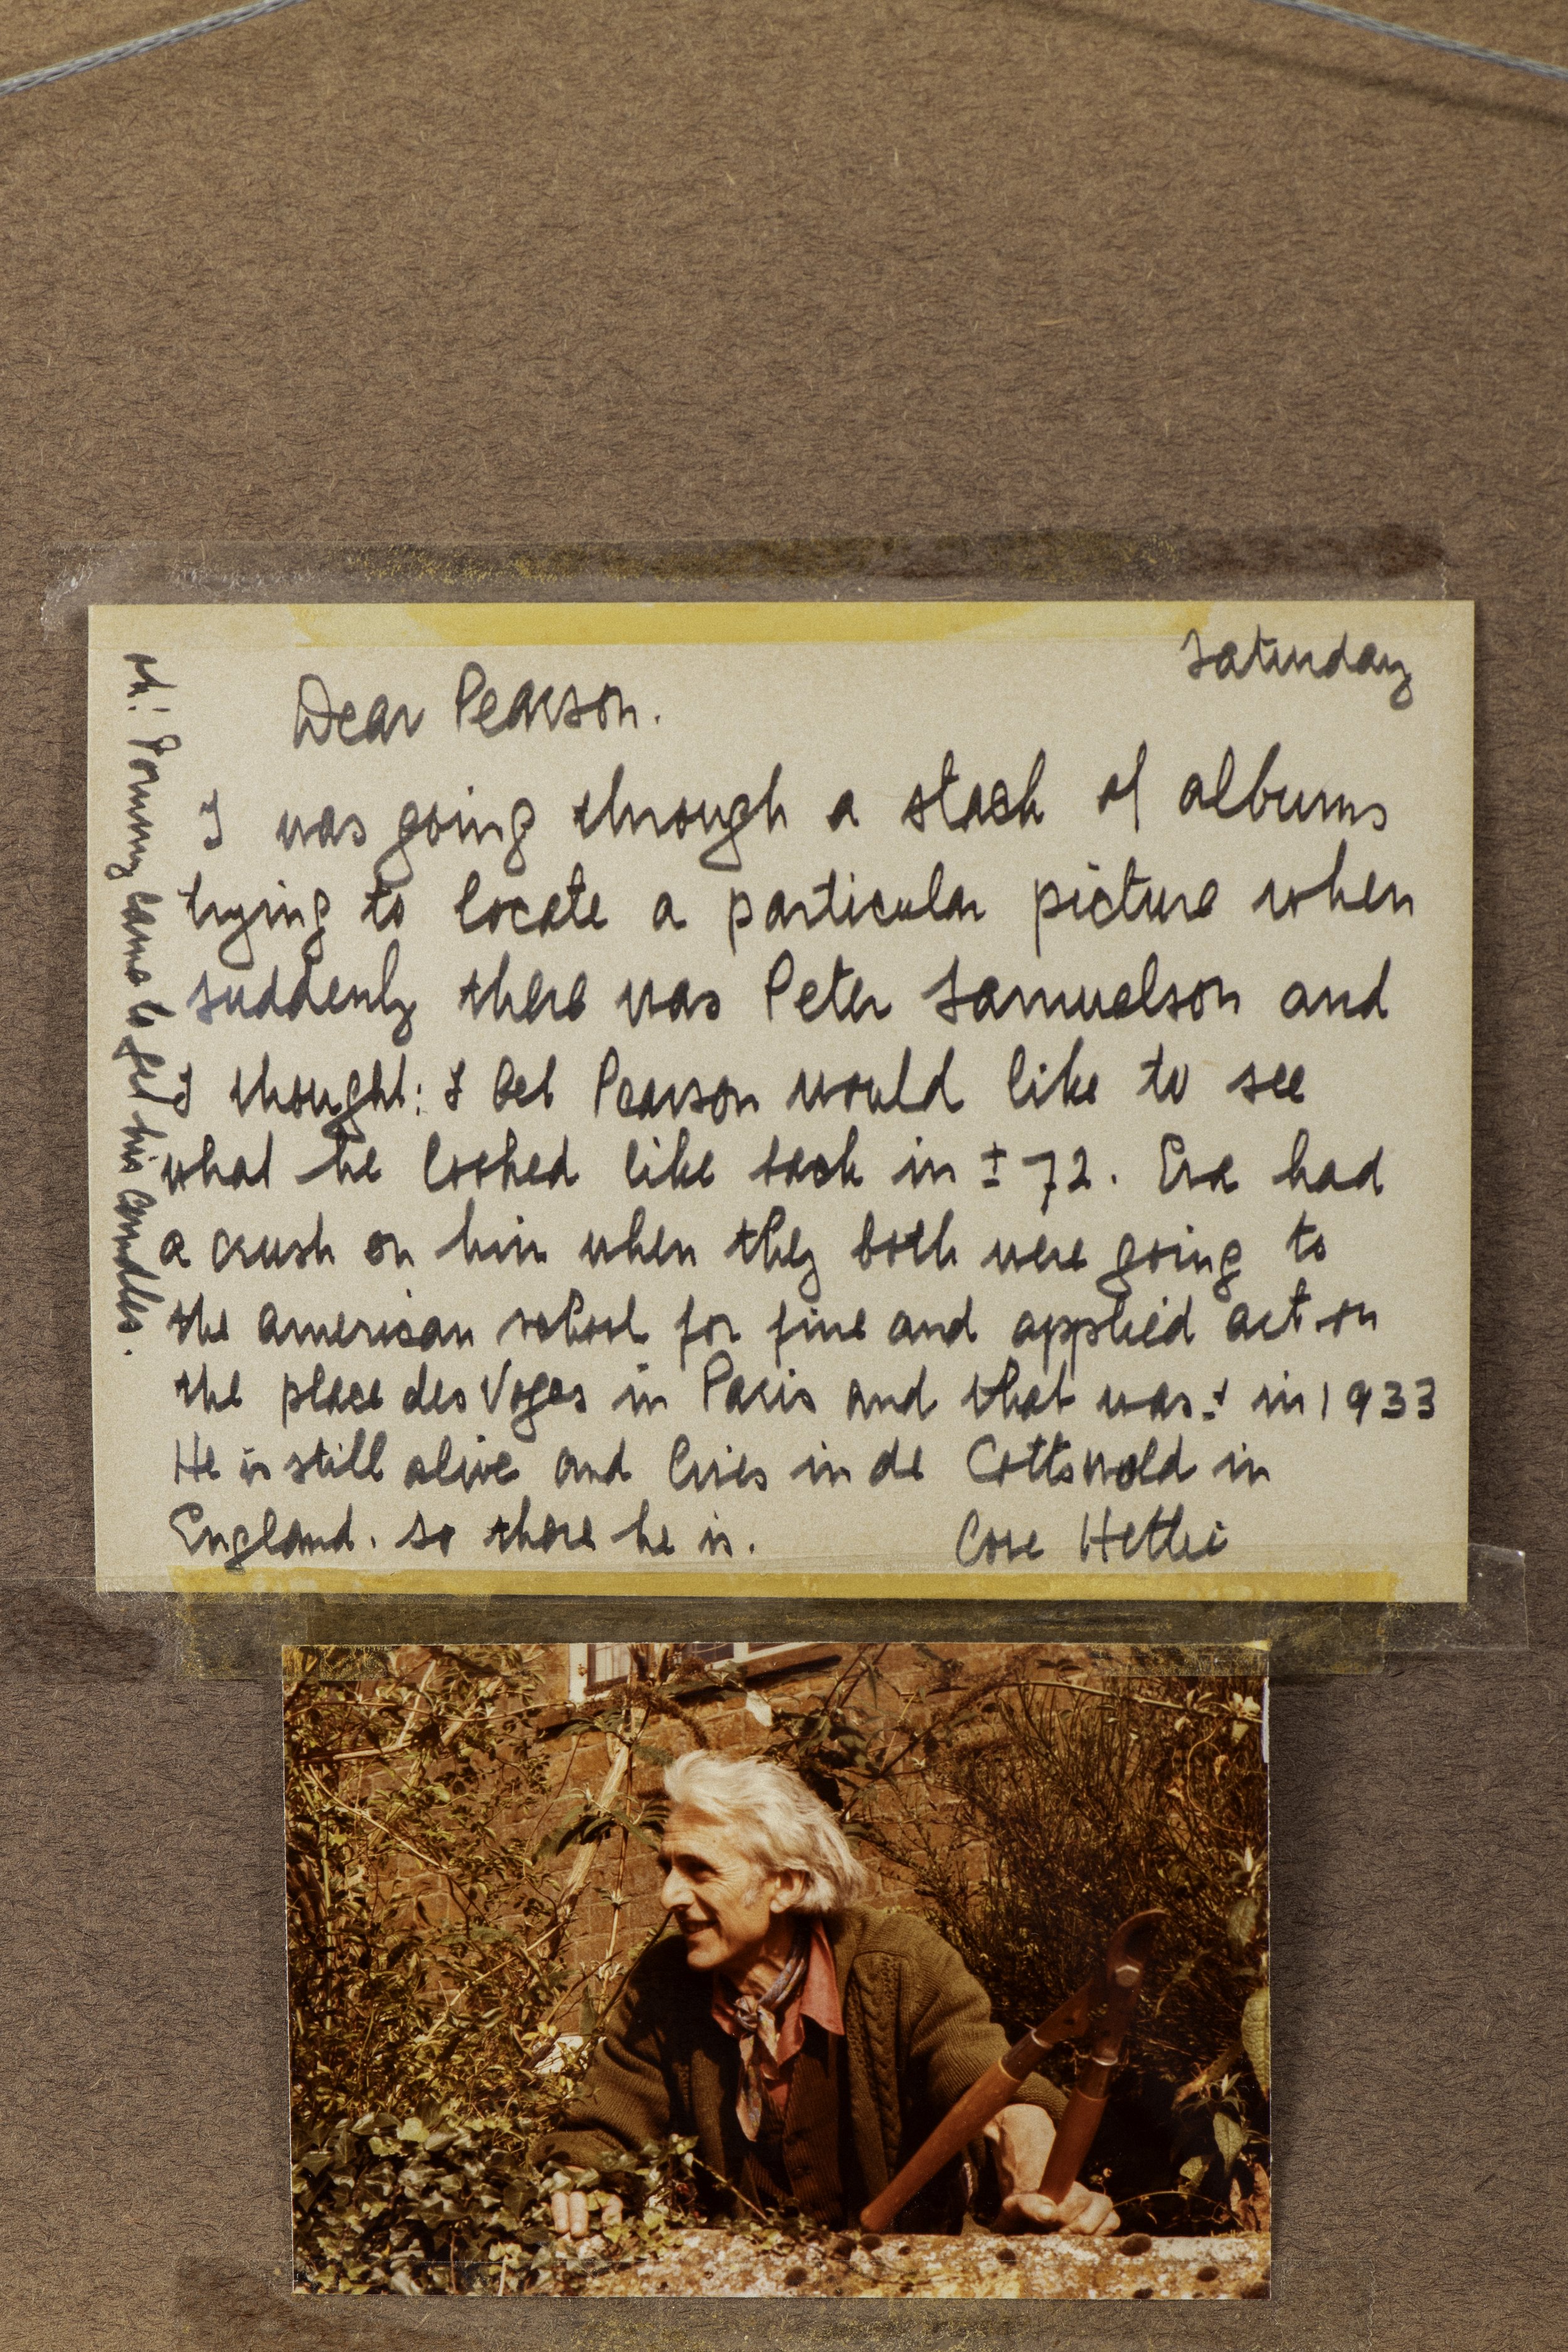 Saturday
Dear Pearson.
I was going through a stack of albums
trying to locate a particular picture when
suddenly there was Peter Samuelson and
I thought: I bet Pearson would like to see
what he looked like back in ± 72. Eva had
a crush on him when they both were going to
the american school for fine and applied art on
the place des Voges in Paris and that was ± in 1933
He is still alive and lives in de Cottswold in
England. so there he is.
Love Hettie
oh! Pommy came to get his candles.